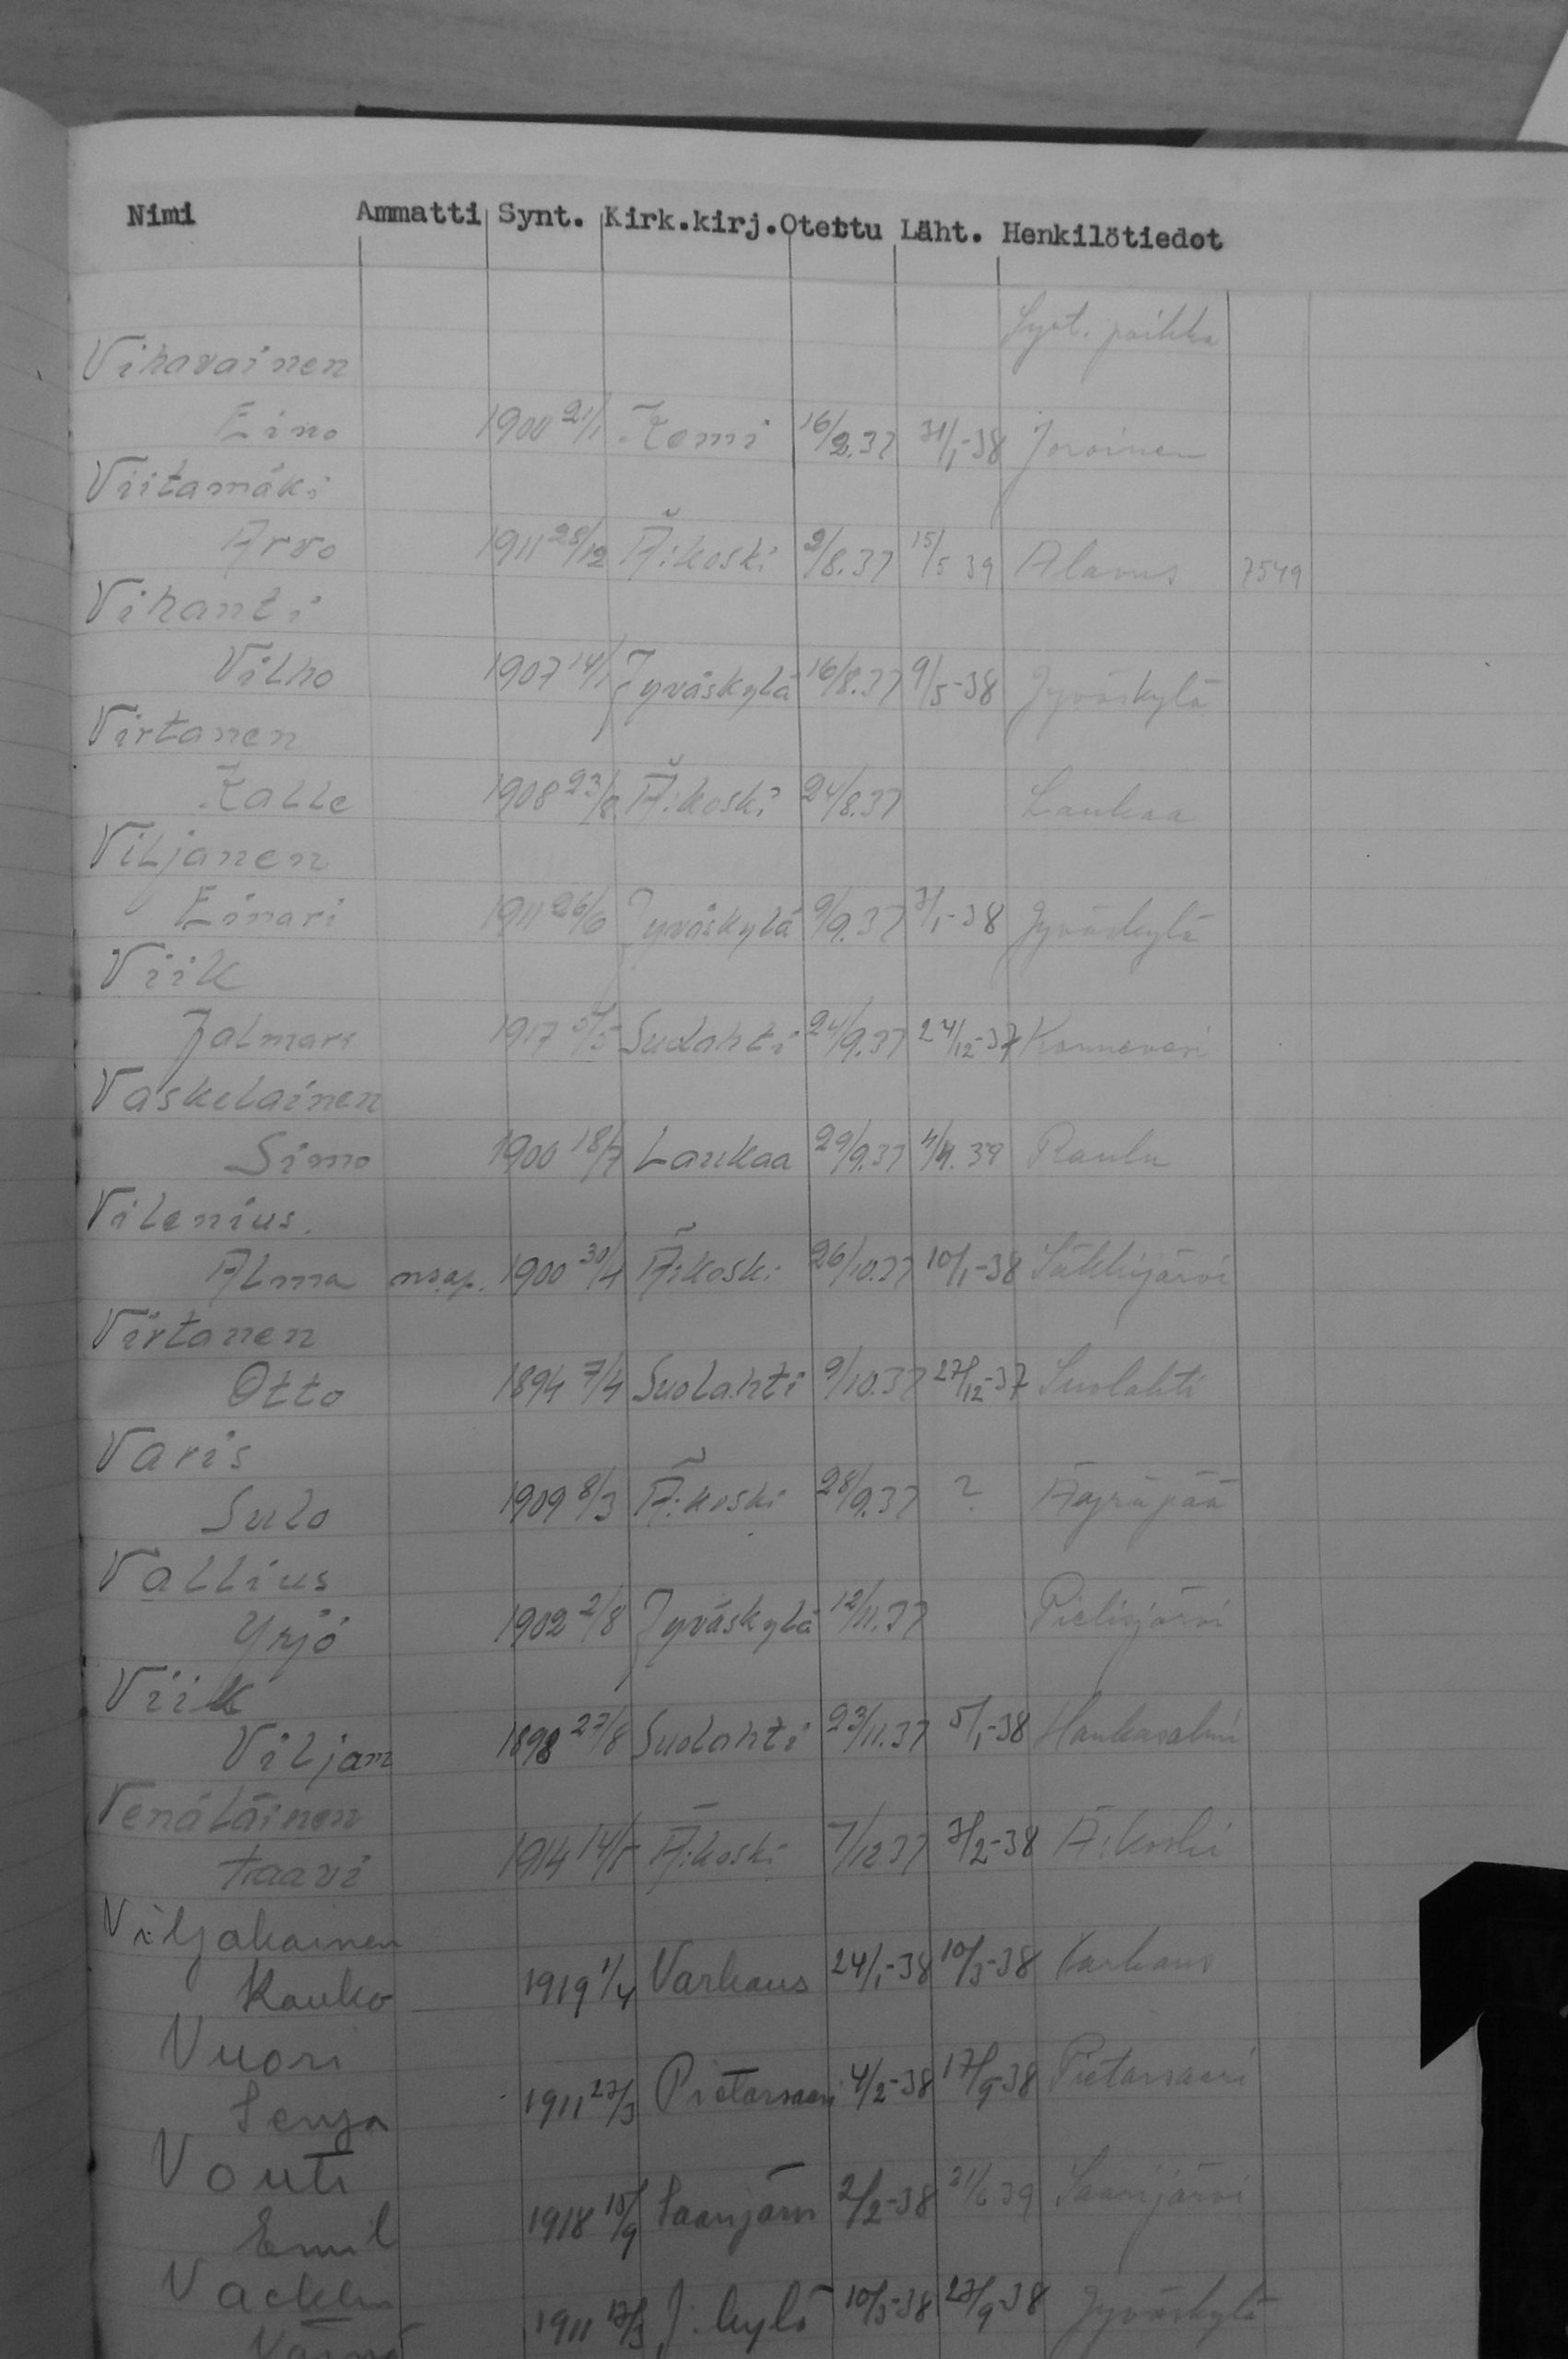 Nimi Ammatti Synt. Kirk.kirj. Otettu Läht. Henkilötiedot
Synt. paikka
Vihavainen
Eino 1900 21/1 Kemi 16/2.37 31/1-38 Joroinen
Viitamäki
Arvo 1911 28/12 Ä:koski 2/8.37 15/5 39 Alavus 7549
Vihanti
Vilho 1907 14/1 Jyväskylä 16/8.37 9/5-38 Jyväskylä
Virtanen
Kalle 1908 23/8 Ä:koski 24/8.37 Laukaa
Viljanen
Einari 1911 26/6 Jyväskylä 9/9.37 3/1-38 Jyväskylä
Viik
Jalmari 1917 Suolahti 24/9.37 24/12-37 Konnevesi
Vaskelainen
Simo 1900 18/7 Laukaa 29/9.37 4/4.39 Rautu
Vilenius.
Alma 1900 30/4 Ä:koski 26/10.37 10/1-38 Säkkijärvi
Virtanen
Otto 1894 7/4 Suolahti 9/10.37 27/12-37 Suolahti
Varis
Sulo 1909 8/3 Ä:koski 28/9.37 ? Äyräpää
Vallius
Yrjö 1902 2/8 Jyväskylä 12/11.37 Pielisjärvi
Viik
Viljam 1898 27/8 Suolahti 23/11.37 5/1-38 Hankasalmi
Venäläinen
Taavi 1914 Ä:koski 7/12 37 3/2-38 Ä:koski
Viljakainen
Kauko 1919 1/4 Varkaus 24/1-38 10/3-38 Varkaus
Vuori
Senja 1911 27/3 Pietarsaari 4/2-38 17/9-38 Pietarsaari
Vouti
Emil 1918 15/9 Saarijärvi 2/2-38 21/6 39 Saarijärvi
Vacklin
Väinö 1911 J:kylä 10/3-38 27/9-38 Jyväskylä